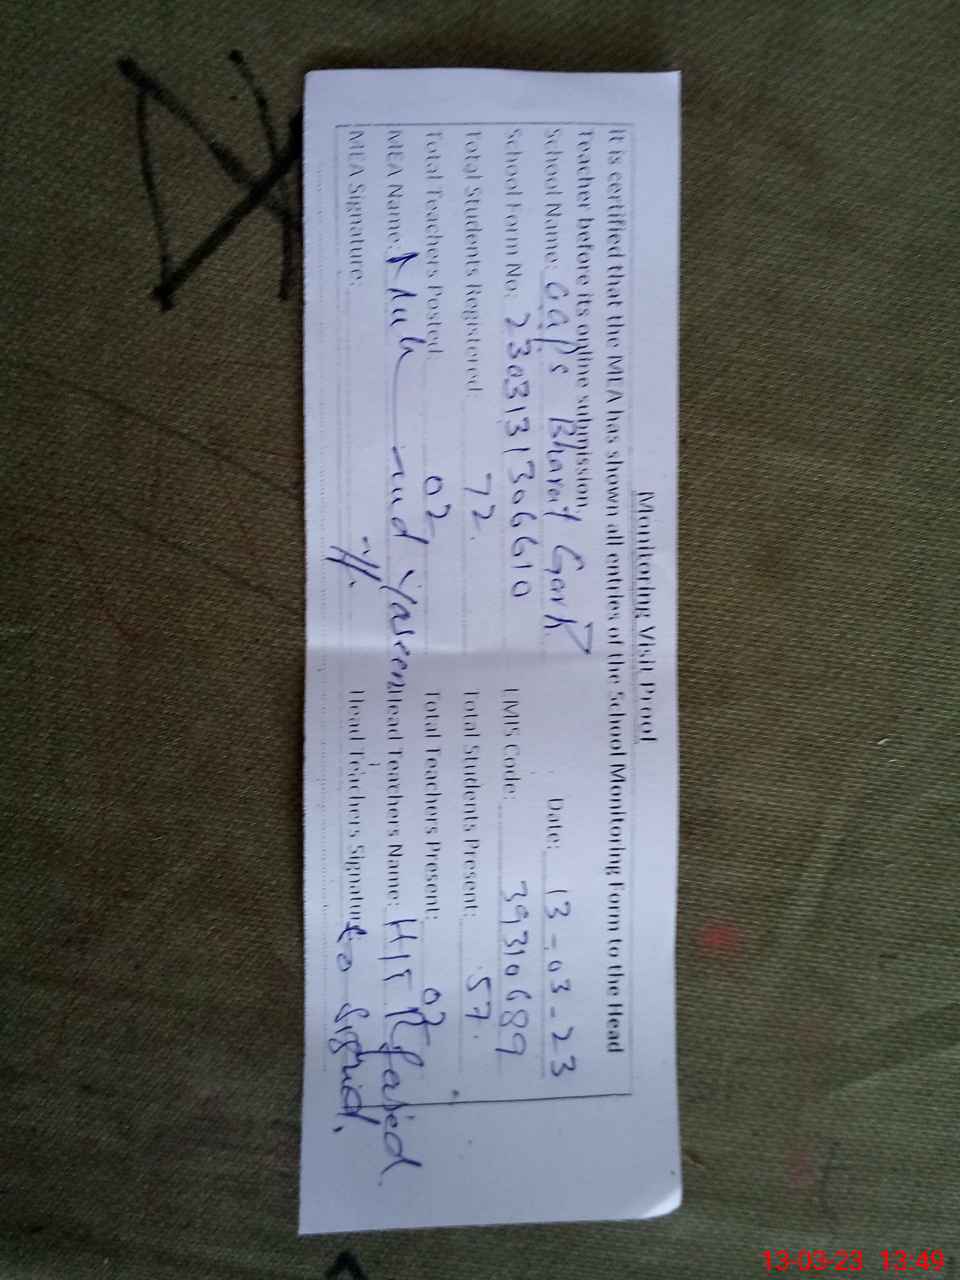 Monitoring Visit Proof
It is certified that the MEA has shown all entries of the School Monitoring Form to the Head
Teacher before its online submission.
School Name: GGPS Bharat Garh Date: 13-03-23
School Form No: 2303131306610 EMIS Code: 39310689
Total Students Registered: 72. Total Students Present: 57.
Total Teachers Posted: 02 Total Teachers Present: 02
MEA Name: Yaseen Head Teachers Name: H/T Rfased
MEA Signature: Head Teachers Signature: to signed.
13-03-23 13:49